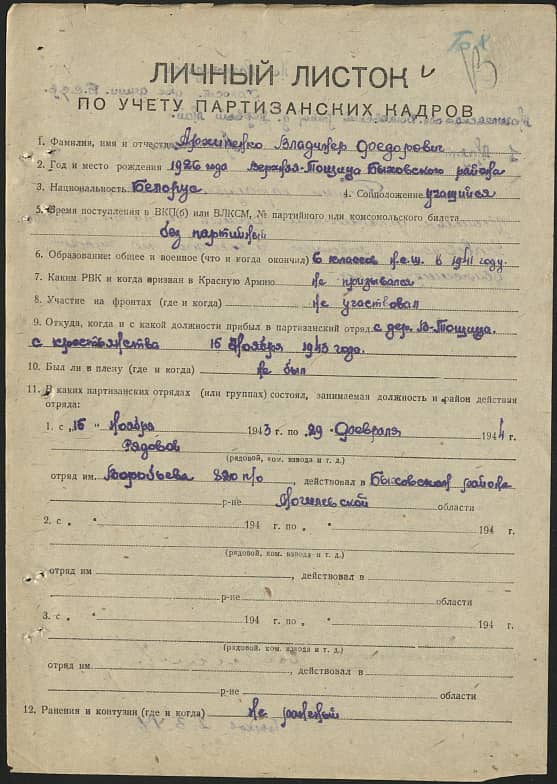 ЛИЧНЫЙ ЛИСТОК
ПО УЧЕТУ ПАРТИЗАНСКИХ КАДРОВ
1. Фамилия, имя и отчество Архипенко Владимер Феодорович
2. Год и место рождения 1926 года Верхняя-Тощица Быховского района
3. Национальность Белорус 4. Соцположение учащийся
5. Время поступления в ВКП(б) или ВЛКСМ, № партийного или комсомольского билета
без партийный
6. Образование: общее и военное (что и когда окончил) 6 классов н.с.ш. в 1941 году.
7. Каким РВК и когда призван в Красную Армию не призывался
8. Участие на фронтах (где и когда) не участвовал
9. Откуда, когда и с какой должности прибыл в партизанский отряд с дер. В-Тощица.
с крестьянства 15 Ноября 1943 года.
10. Был ли в плену (где и когда) не был
11. В каких партизанских отрядах (или группах) состоял, занимаемая должность и район действия
отряда:
1. с „15" Ноября 1943 г. по 29 Февраля 1944 г.
Рядовой
(рядовой, ком. взвода и т. д.)
отряд им. Воробьева 820 п/о, действовал в Быховском района
р-не Могилевской области
2. с „ " 194 г. по „ " 194 г.
(рядовой, ком. взвода и т. д.)
отряд им , действовал в
р-не области
3. с „ " 194 г. по „ " 194 г.
(рядовой, ком. взвода и т. д.)
отряд им , действовал в
р-не области
12. Ранения и контузии (где и когда) не раненый